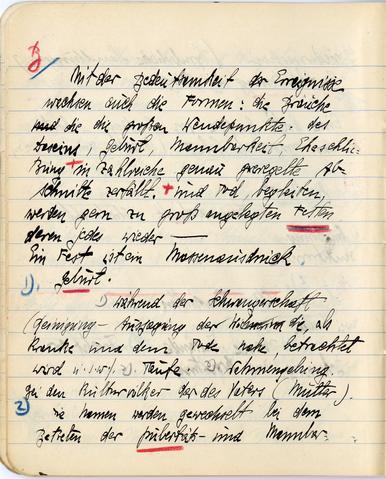 Mit der Bedeutsamkeit der Ereignisse
wachsen auch die Formen: die Bräuche
und die die großen Wendepunkte des
Daseins, Geburt, Mannbarkeit Eheschli-
ßung + in zahlreiche genau geregelte Ab-
schnitte zerfällt. + und Tod begleiten,
werden gern zu groß angelegten Festen
deren jedes wieder —
Ein Fest ist ein Massenausdruck
1). Geburt.
während der Schwangerschaft
(Reinigung - der als
Kranke und dem Tode nahe, betrachtet
wird u.s.w. Taufe. Namengebung.
bei den Kulturvölker der des Vaters (Mutter).
2) die Namen werden gewechselt bei dem
der Pubertäts- und Mannbar-